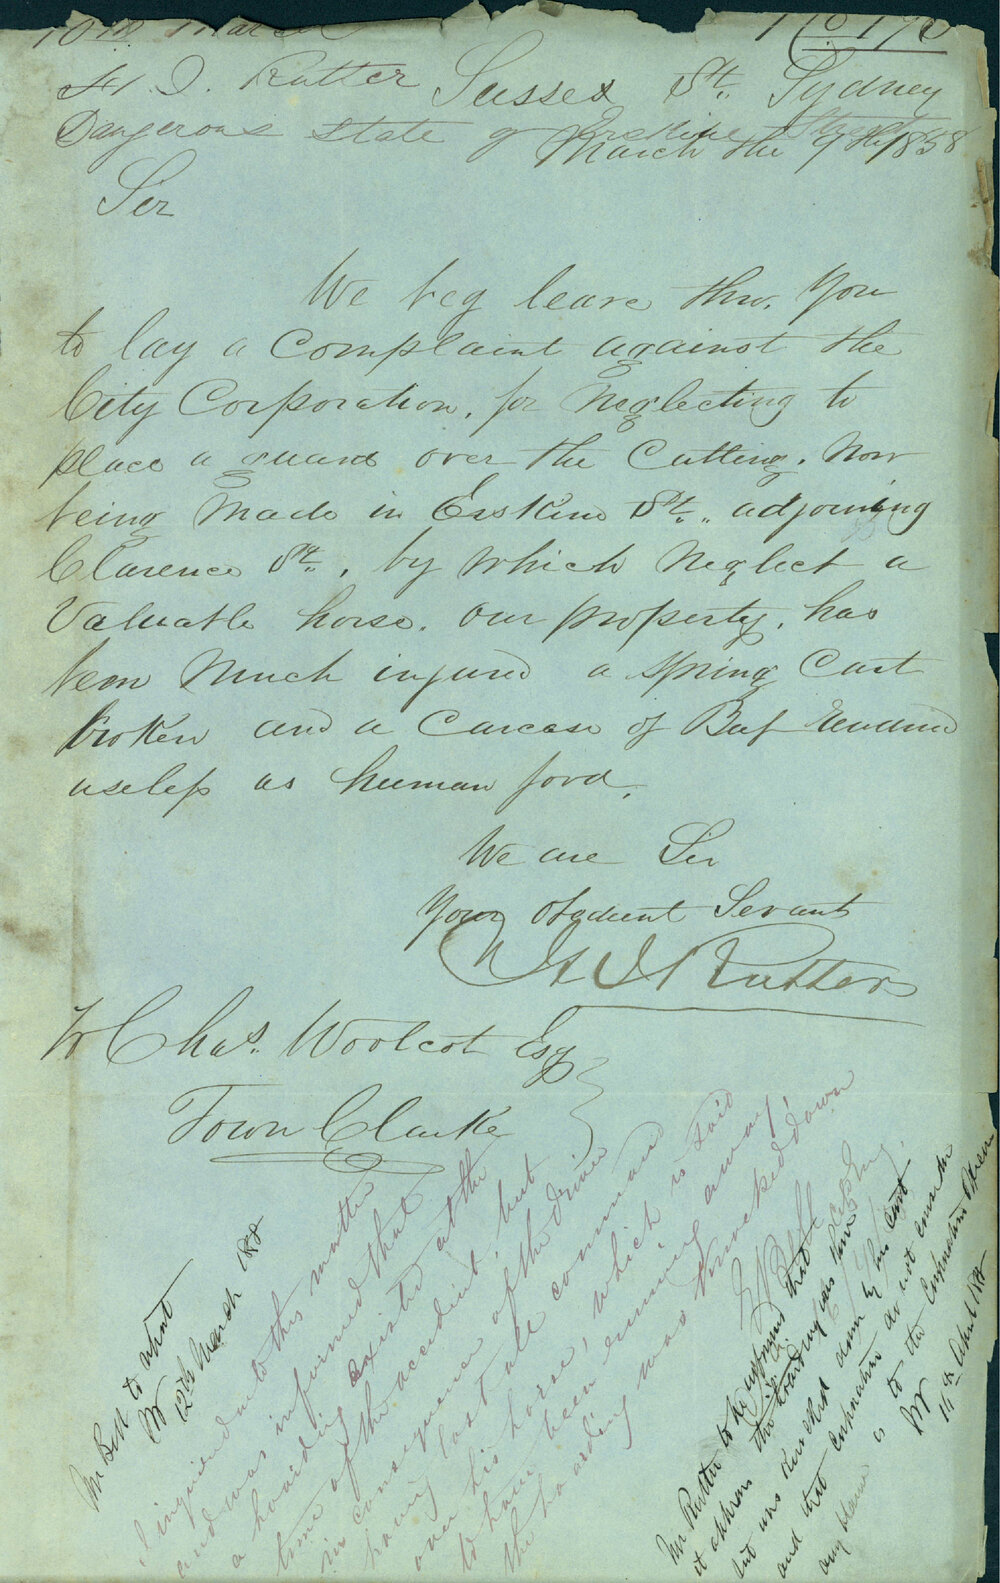 10th March No 170
H. J. Rutter Sussex St. Sydney
Dangerous state of Erskine Street
March the 9th 1858
Sir
We beg leave thro. You
to lay a Complaint against the
City Corporation, for Neglecting to
place a guard over the Cutting, Now
being Made in Erskine St. adjoining
Clarence St., by which Neglect a
Valuable horse, our property, has
been Much injured a Spring Cart
broken and a Carcase of Beef Rendered
useless as human food.
We are Sir
Your Obedient Servants
H J Rutter
To Chas. Woolcot Esq
Town Clarke
Mr Bell to report
12th March 1858
I inquired into this matter
and was informed that
a hoarding existed at the
time of the accident; but
in consequence of the driver
having lost all command
over his horse, which is said
to have been running away,
the hoarding was knocked down
E Bell
City Eng.
Mr Rutter to be informed that
it appears the hoarding was there
but was knocked down by his cart
and that Corporation do not consider
any blame is to the Corporation
14th April 1858